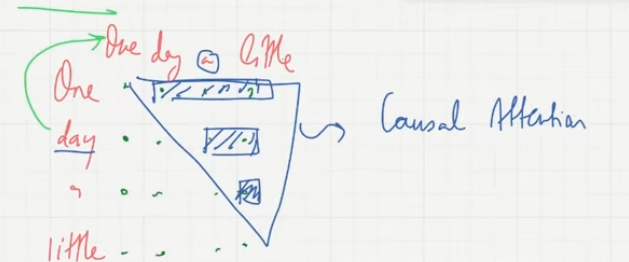 One day a little
One
day
a
little
Causal Attention